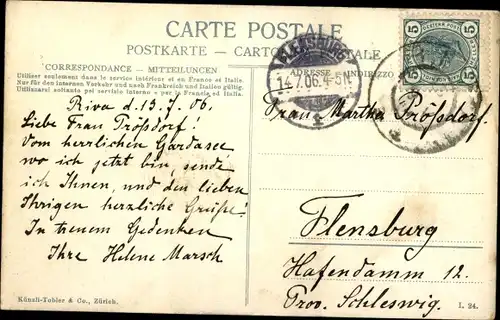 CARTE POSTALE
POSTKARTE - CARTOLINA POSTALE
CORRESPONDANCE - MITTEILUNGEN
Utiliser seulement dans le service intérieur et en France et Italie.
Nur für den internen Verkehr und nach Frankreich und Italien gültig.
ADRESSE INDIRIZZO
FLENSBURG
14.7.06.4-5N
5 5
5 5
Riva d. 13.7.06.
Liebe Frau Prößdorf!
Vom herrlichen Gardasee,
wo ich jetzt bin, sende
ich Ihnen, und den lieben
Ihrigen herzliche Grüße!
In treuem Gedenken
Ihre Helene Marsch
Frau Martha Prößdorf.
Flensburg
Hafendamm 12.
Prov. Schleswig.
Künzli-Tobler & Co., Zürich.
I. 24.